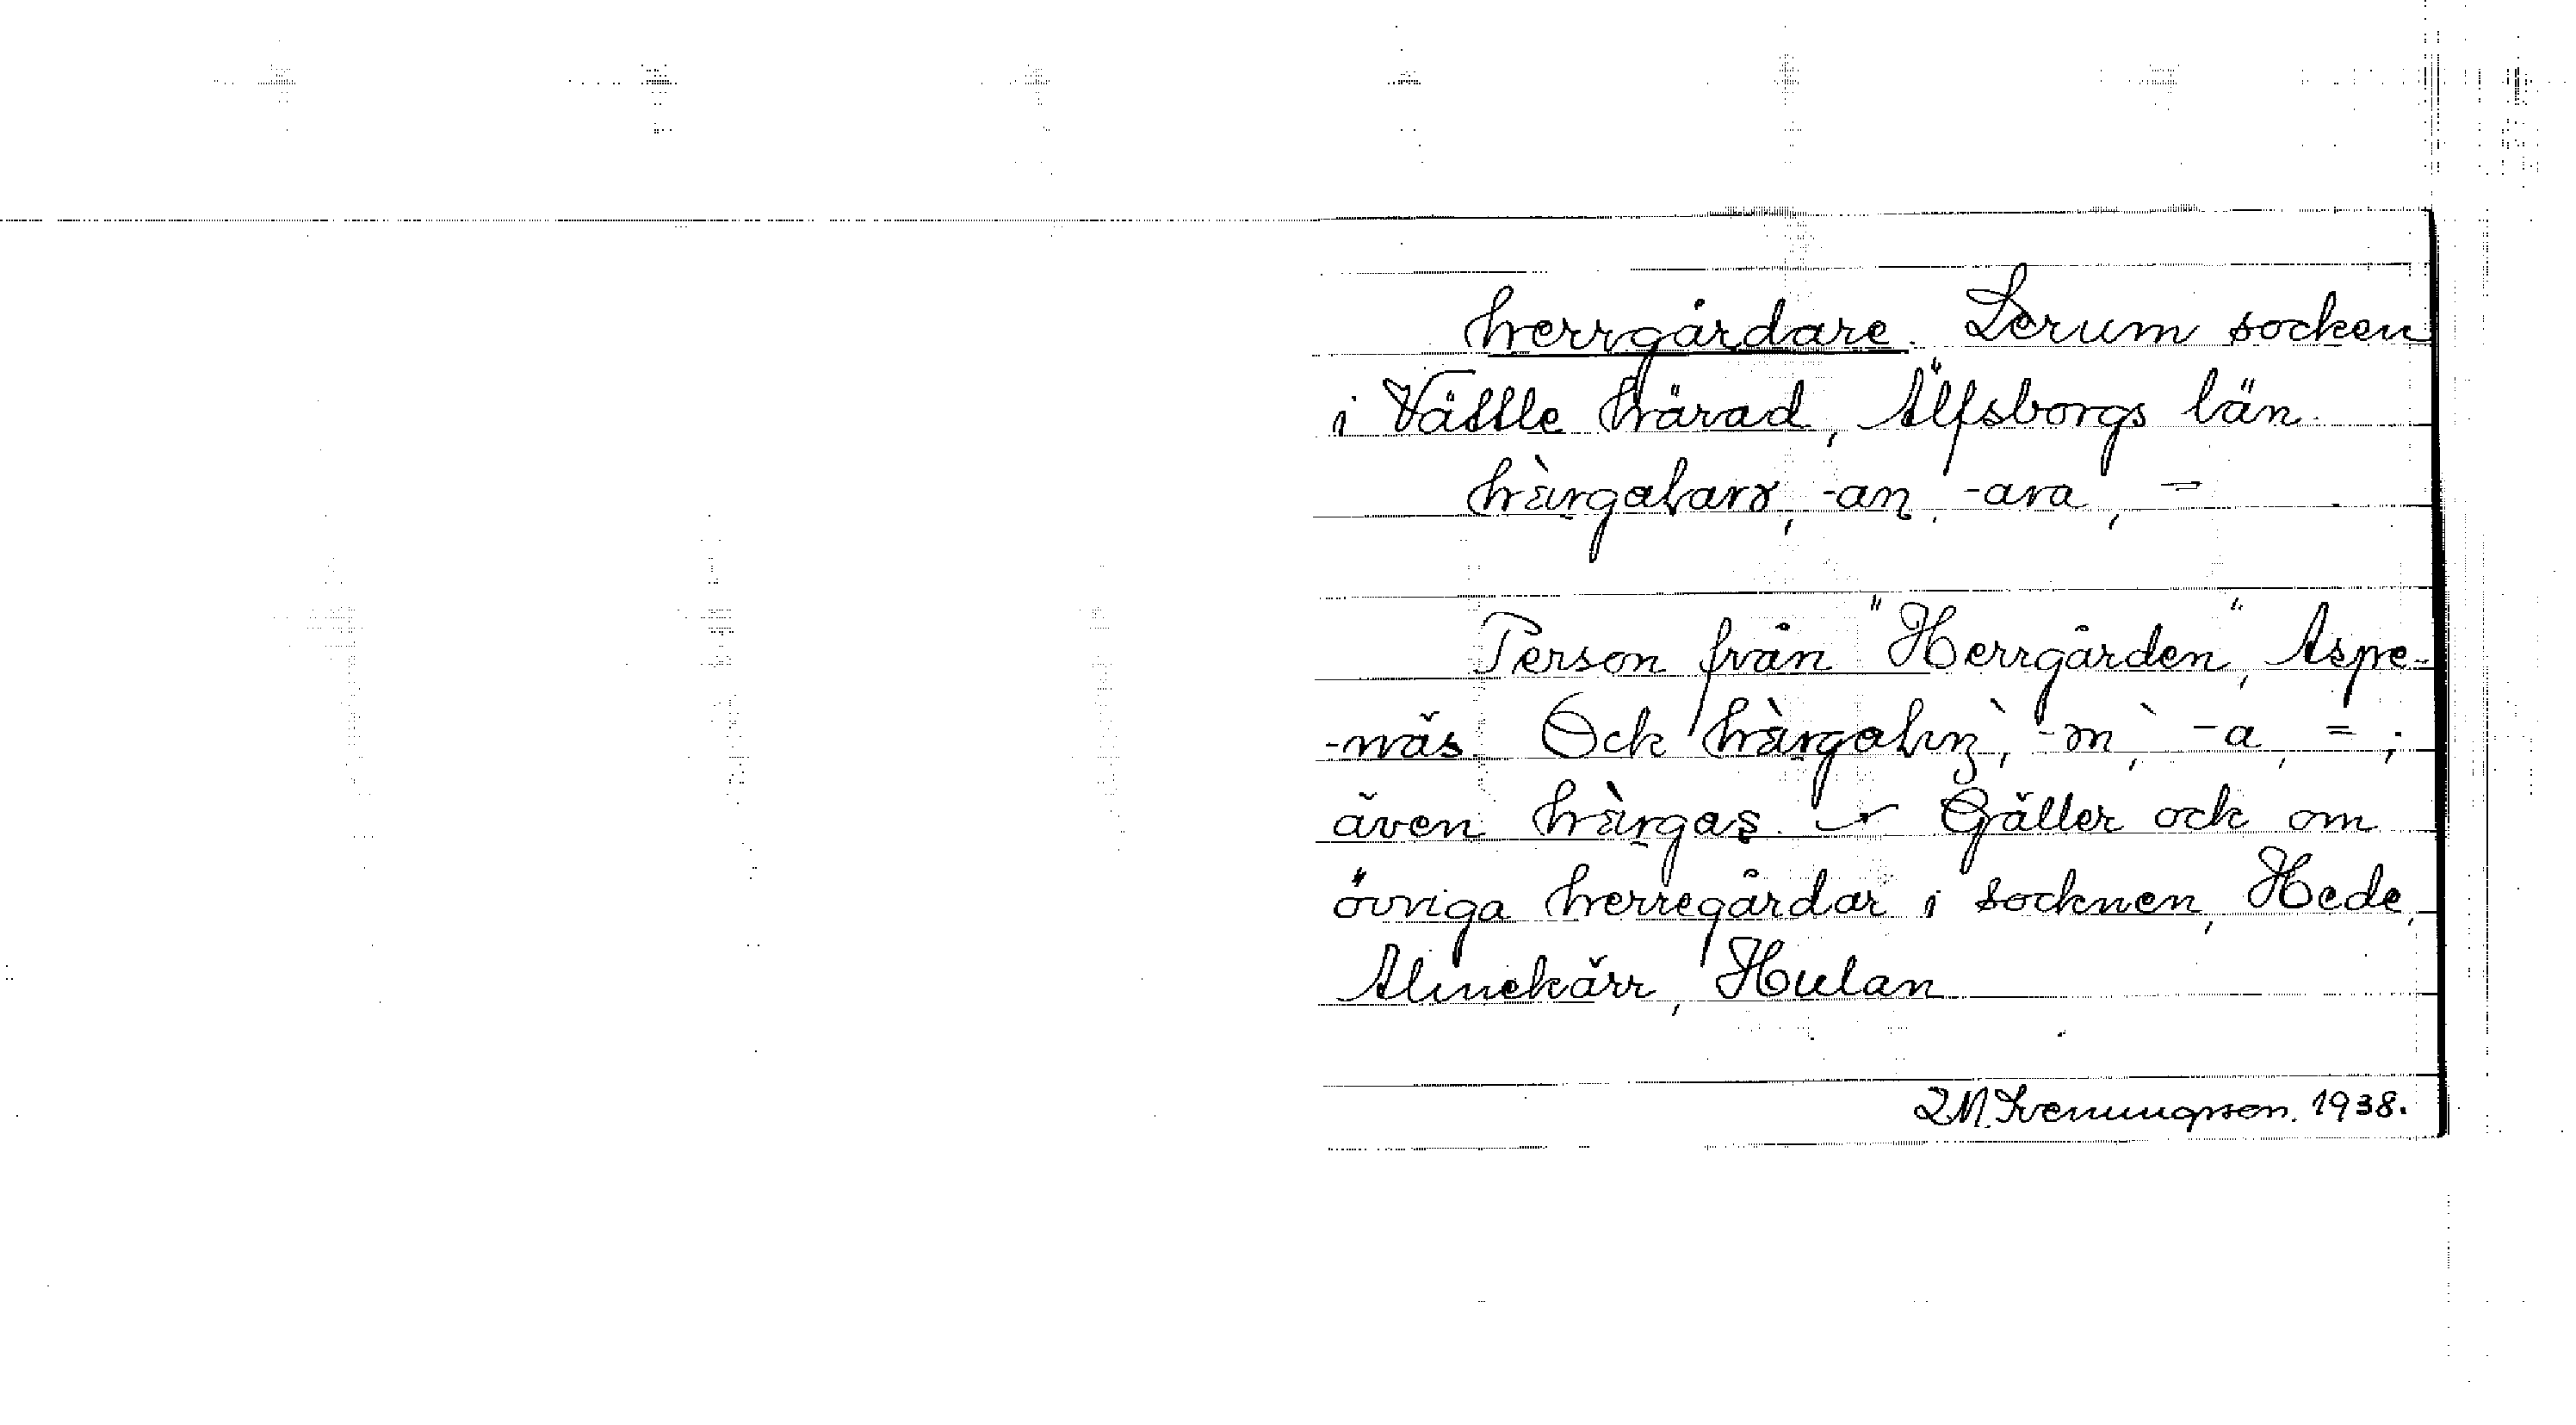 herrgårdare. Lerum socken
i Vättle härad, Älfsborgs län.
-an, -ara, =
Person från "Herrgården", Aspe-
-näs. Ock -a, = ;
även Gäller ock om
övriga herregårdar i socknen, Hede,
Almekärr, Hulan
1938.